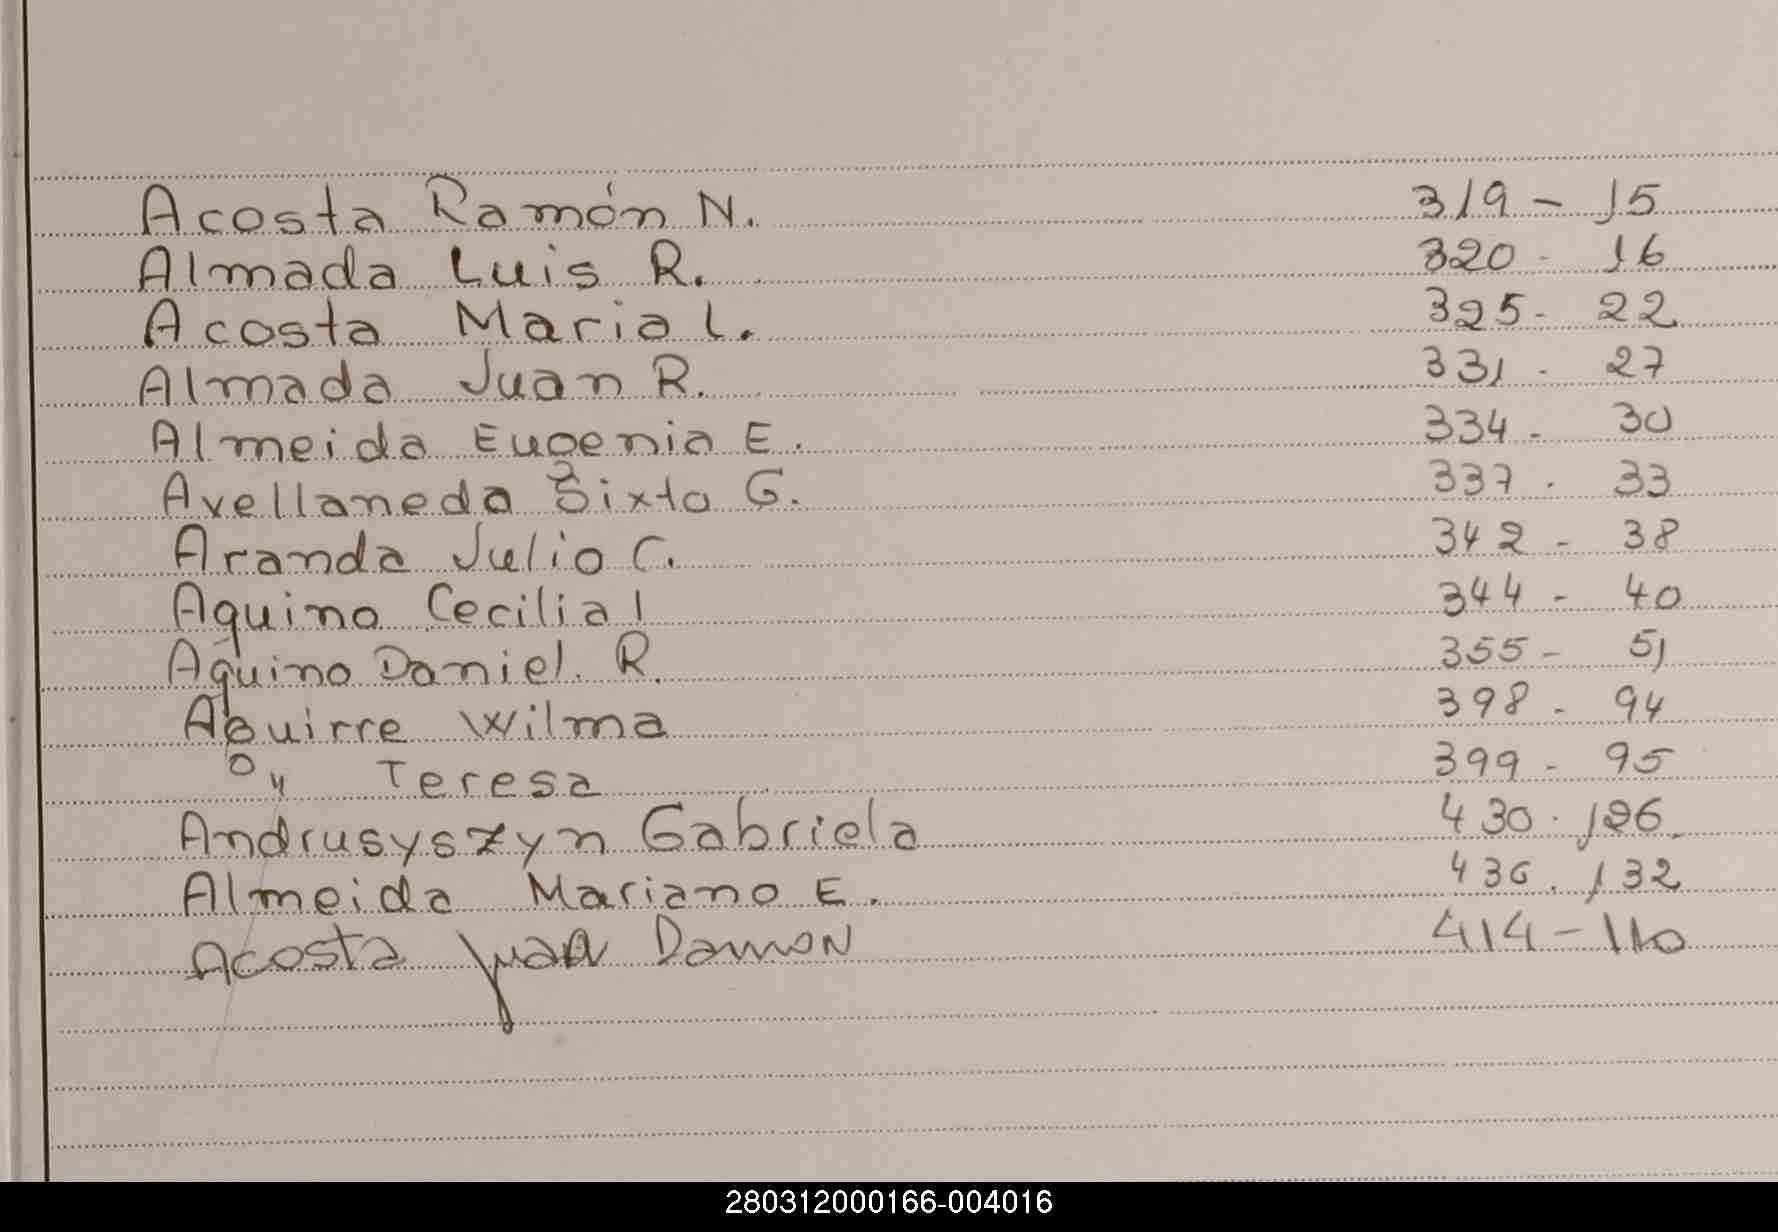 Acosta Ramón N. 319 - 15
Almada Luis R. 320 - 16
Acosta Maria L. 325 - 22
Almada Juan R. 331 - 27
Almeida Eugenia E. 334 - 30
Avellaneda Sixto G. 337 . 33
Aranda Julio C. 342 - 38
Aquino Cecilia I 344 - 40
Aquino Daniel. R. 355 - 51
Aguirre Wilma 398 - 94
" Teresa 399 - 95
Andrusyszyn Gabriela 430 . 126.
Almeida Mariano E. 436 . 132
Acosta Juan Damon 414 - 110
280312000166-004016